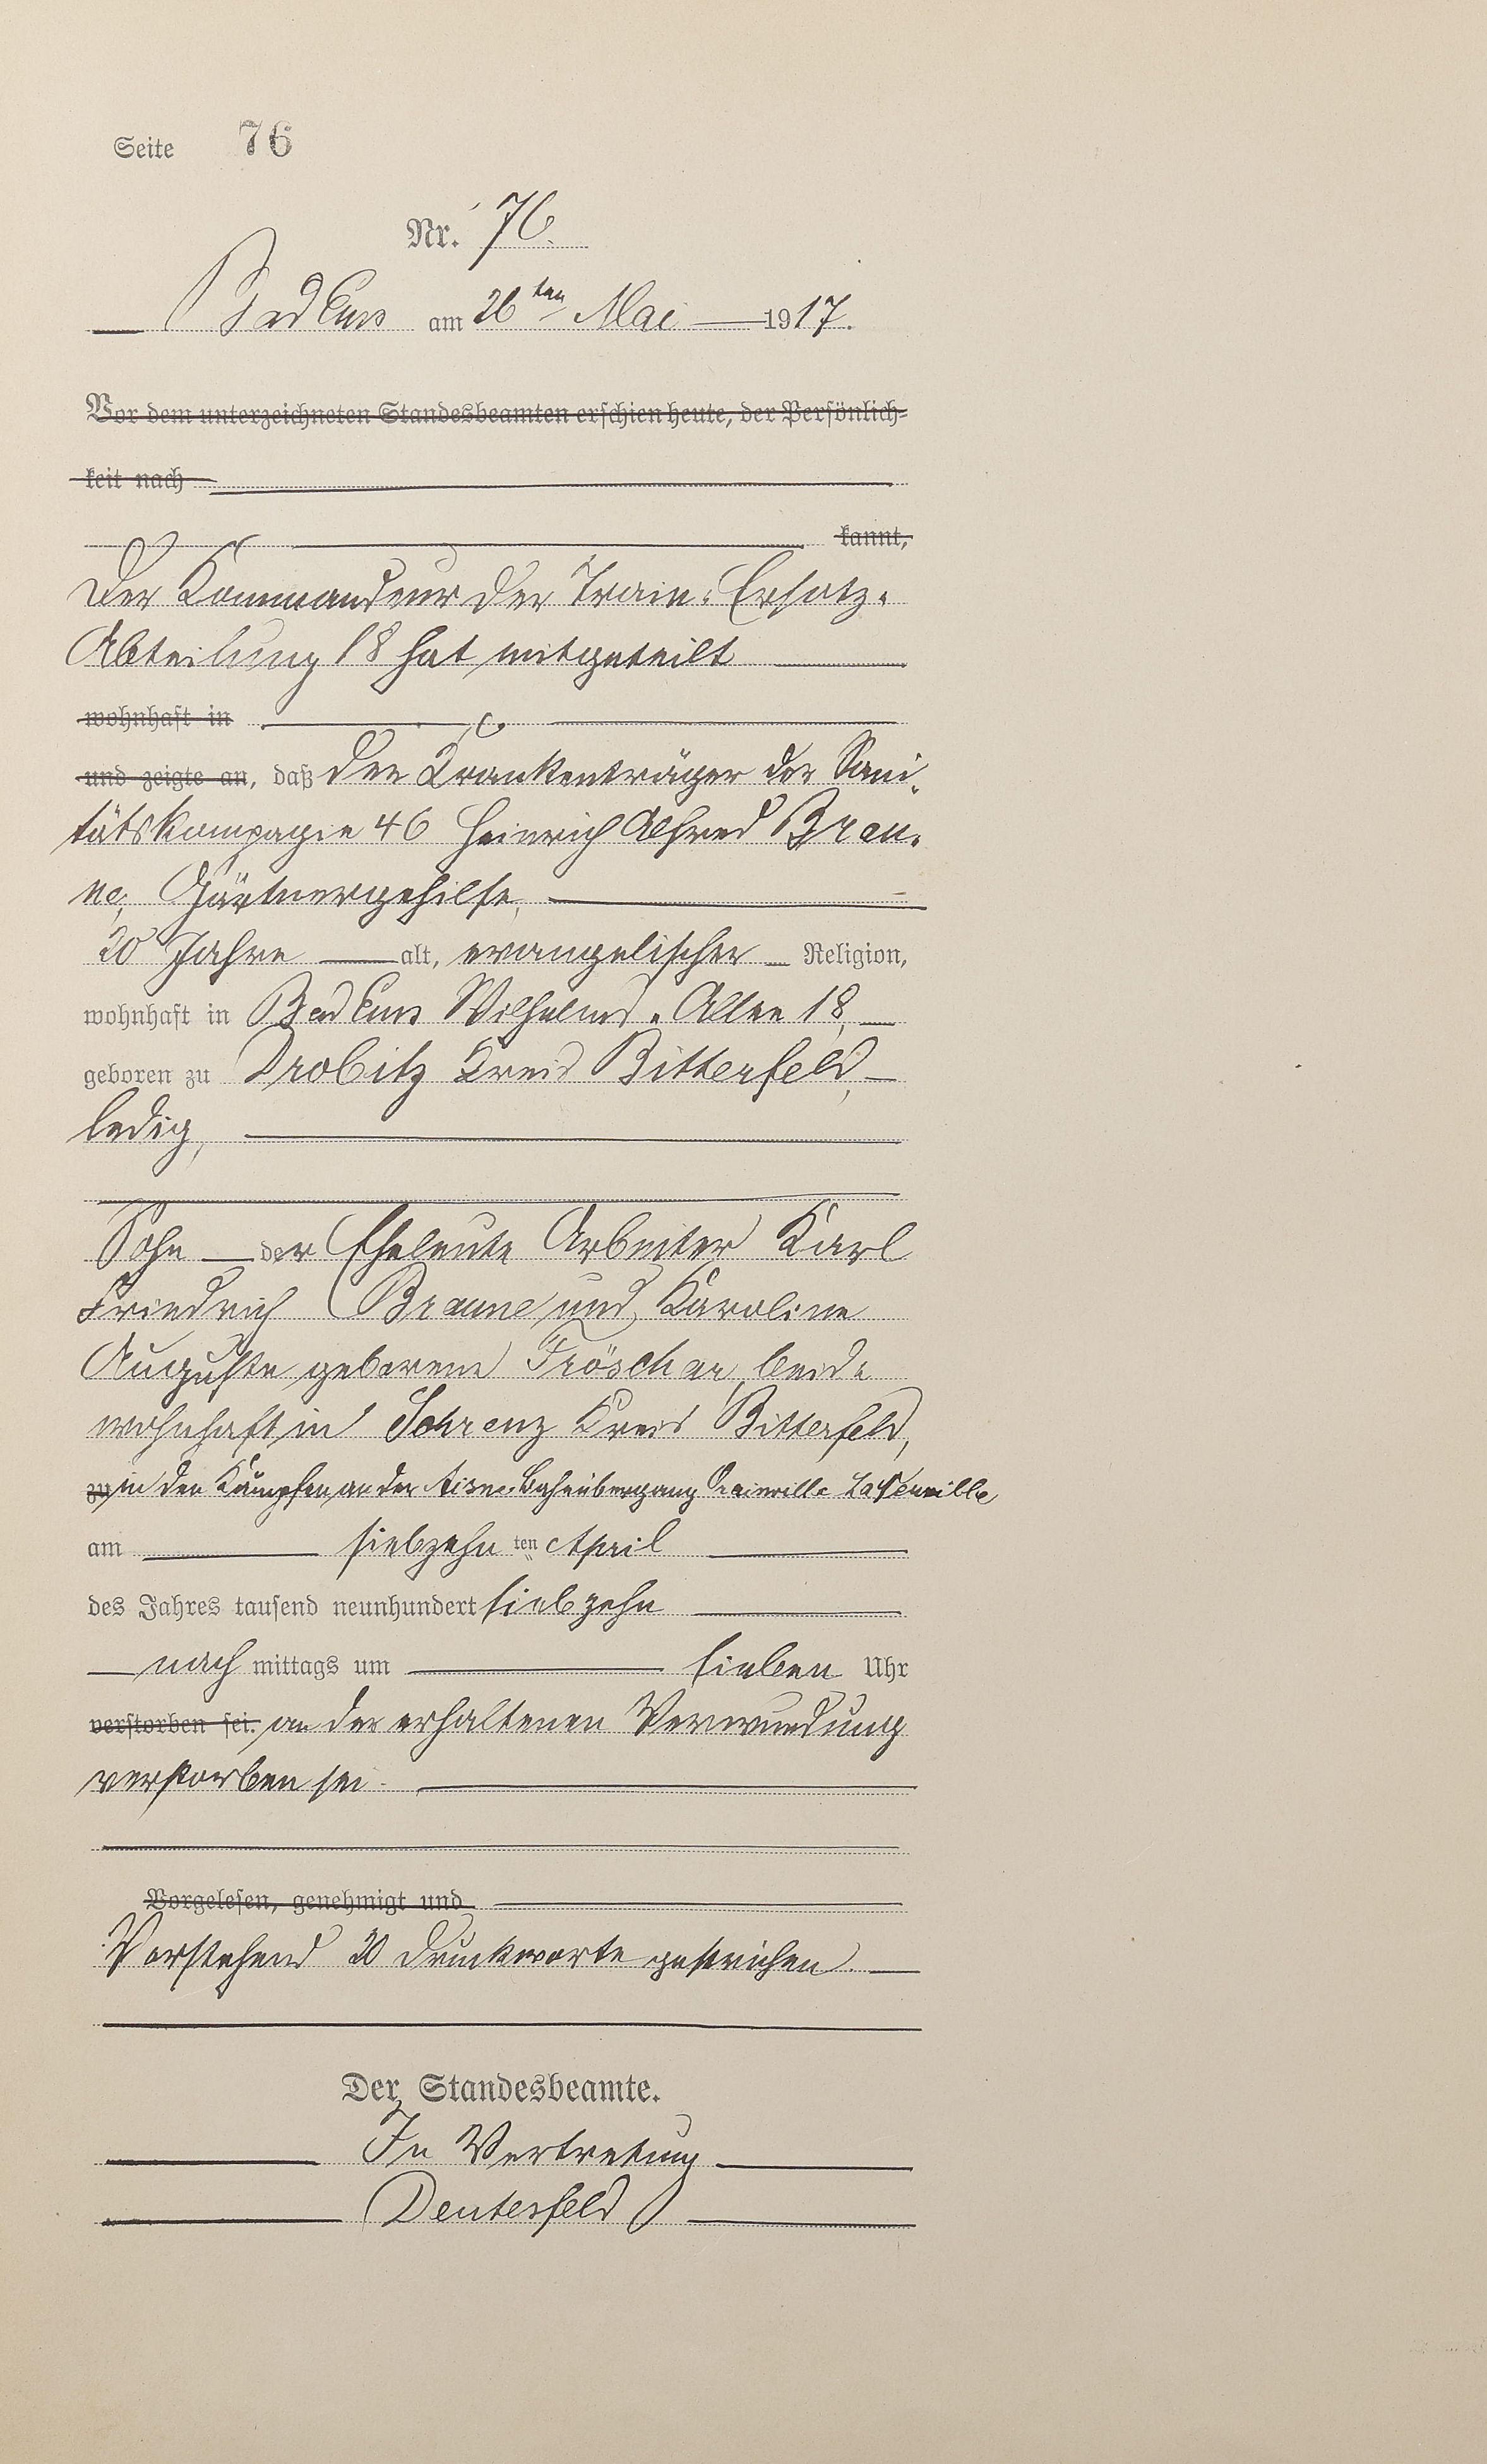 Seite 76
Nr. 76.
Bad Ems am 26ten Mai 1917.
Vor dem unterzeichneten Standesbeamten erschien heute, der Persönlich-
keit nach
kannt,
Der Kommandeur der Train-Ersatz-
Abteilung 18 hat mitgeteilt
wohnhaft in
und zeigte an, daß der Krankenträger der Sani-
tätskompagnie 46 Heinrich Alfred Brau-
ne, Gärtnergehilfe,
20 Jahre alt, evangelischer Religion,
wohnhaft in Bad Ems Wilhelms-Allee 18,
geboren zu Drobitz Kreis Bitterfeld,
ledig,
Sohn der Eheleute Arbeiter Karl
Friedrich Braune und Karoline
Auguste geborene Tröscher beide
wohnhaft in Schrenz Kreis Bitterfeld,
zu in den Kämpfen an der Aisne Bahnübergang Orainville La Neuville
am siebzehnten April
des Jahres tausend neunhundert siebzehn
nachmittags um sieben Uhr
verstorben sei. an der erhaltenen Verwundung
verstorben sei.
Vorgelesen, genehmigt und
Vorstehend 20 Druckworte gestrichen.
Der Standesbeamte.
In Vertretung